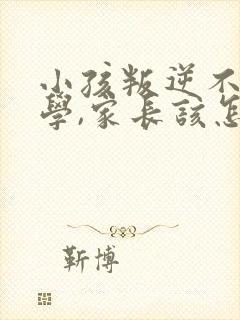 小孩叛逆不
學,家长該怎
靳博